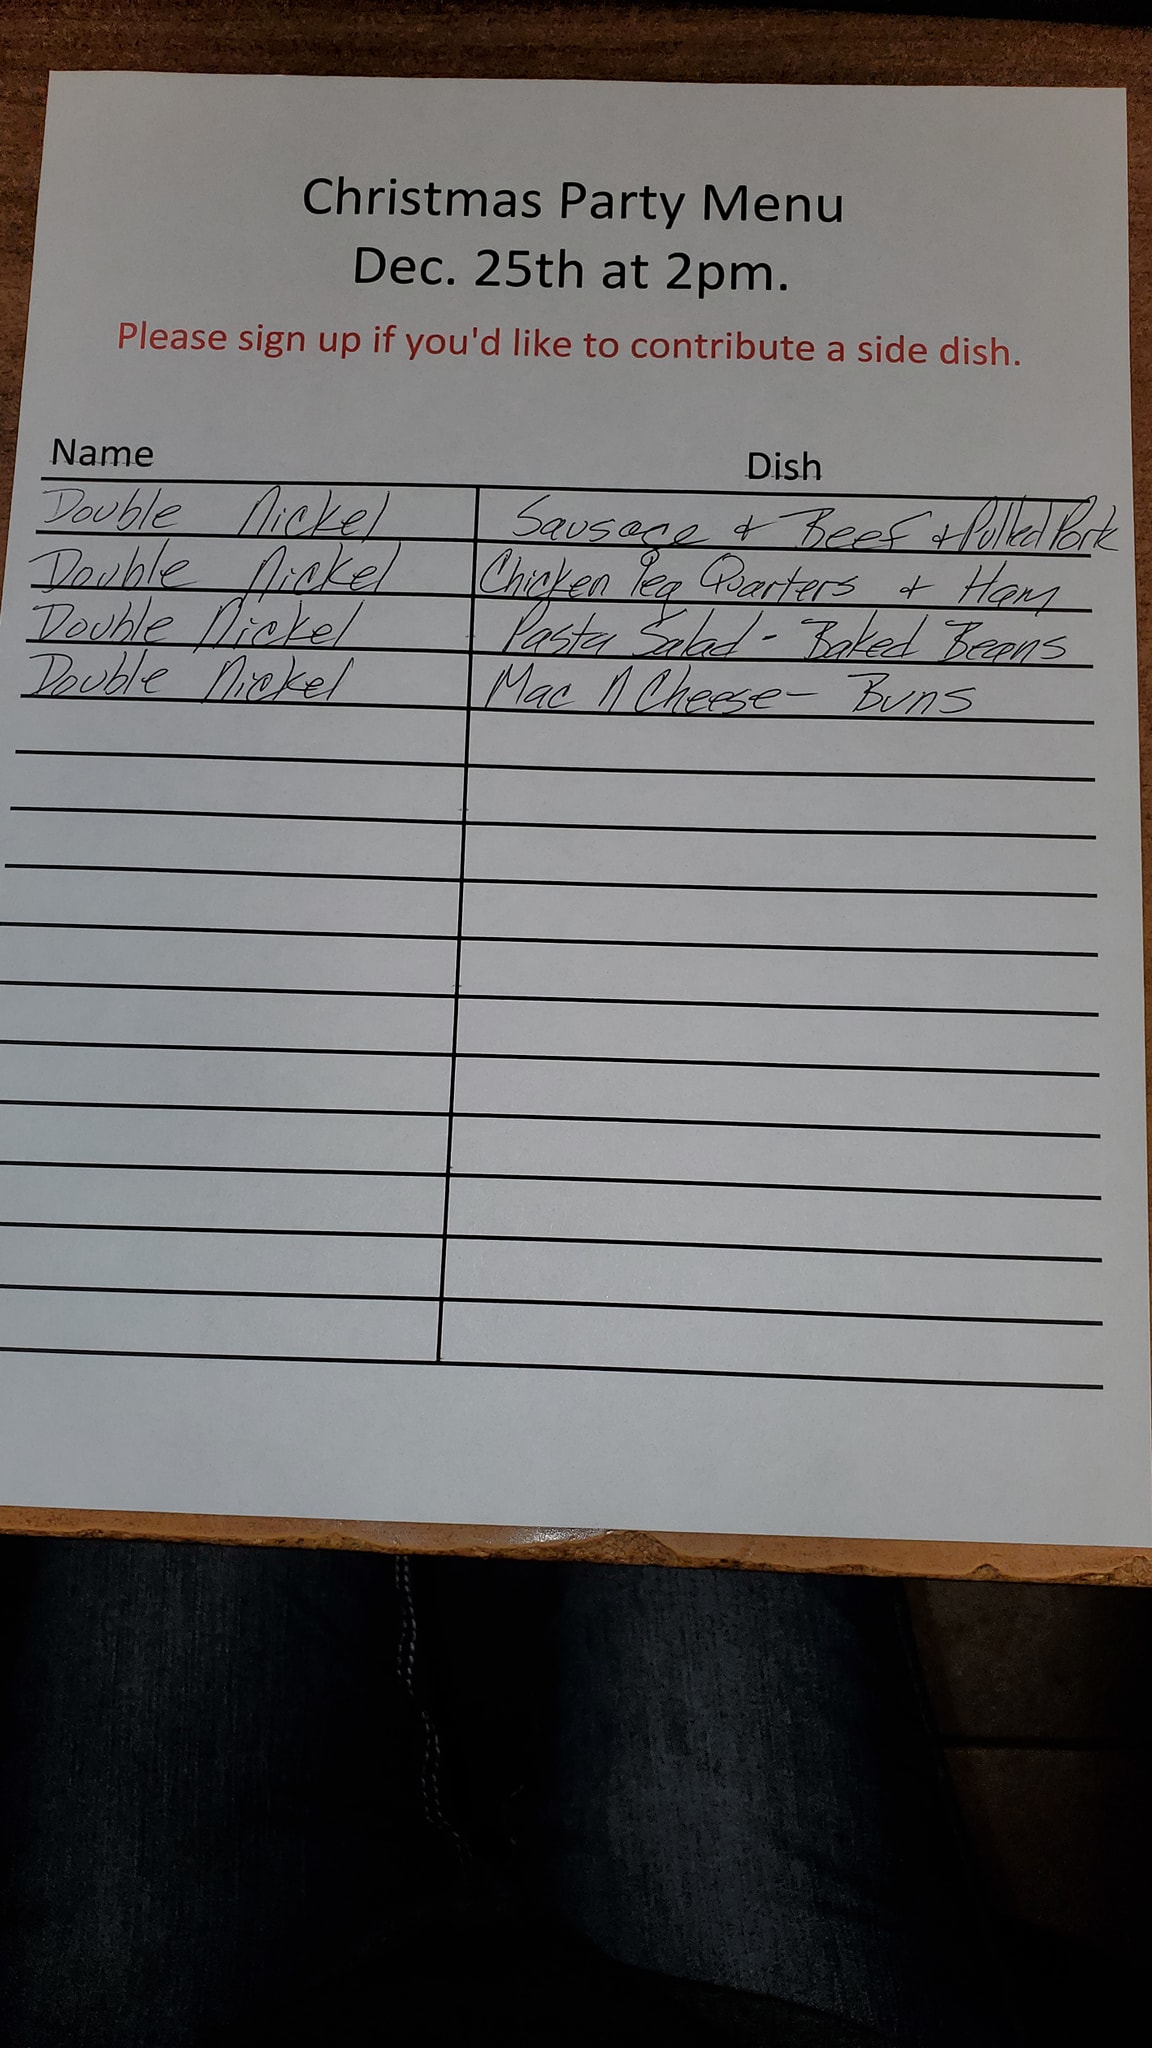 Christmas Party Menu
Dec. 25th at 2pm.
Please sign up if you'd like to contribute a side dish.
Name Dish
Double Nickel Sausage & Beef & Pulled Pork
Double Nickel Chicken Leg Quarters & Ham
Double Nickel Pasta Salad - Baked Beans
Double Nickel Mac N Cheese - Buns